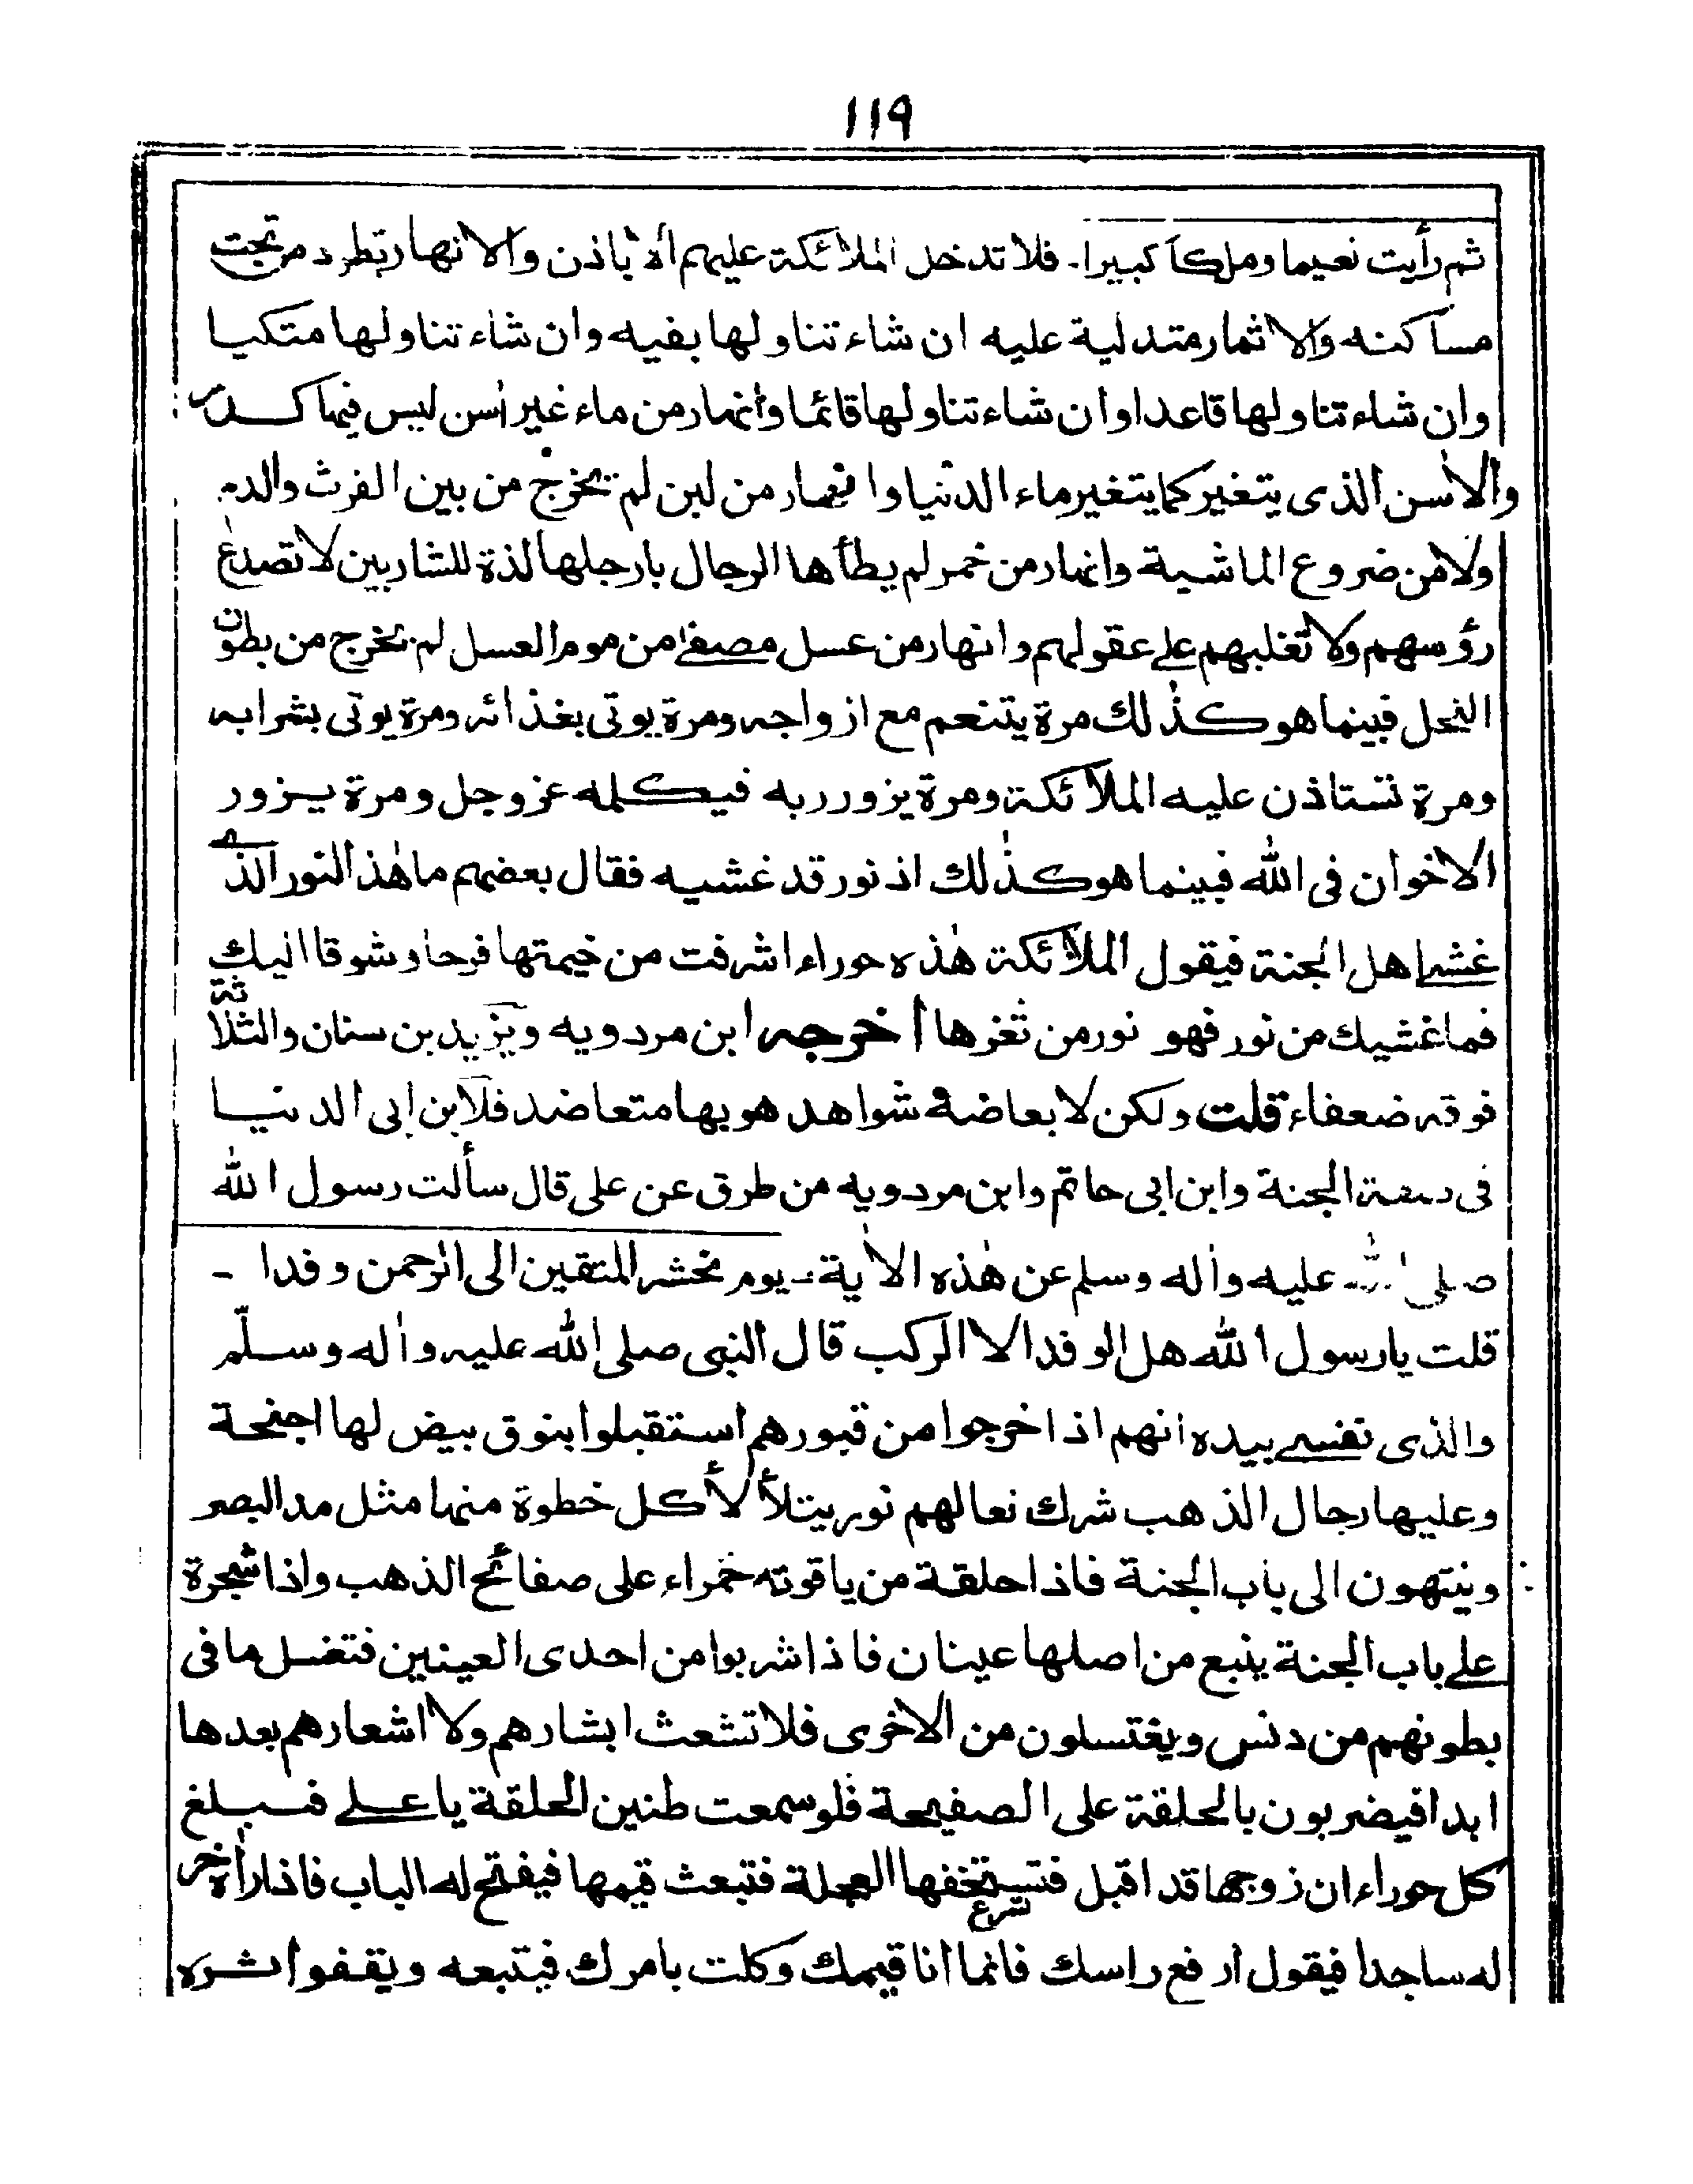 ١١٩
ثم رأيت نعيما وملكا كبيرا. فلا تدخل الملائكة عليهم الا باذن والانهار تطرد من تحت
مساكنه والاثمار متدلية عليه ان شاء تناولها بفيه وان شاء تناولها متكيا
وان شاء تناولها قاعدا وان شاء تناولها قائما وانهار من ماء غير اٰسن ليس فيها كدر
والاٰسن الذى يتغير كما يتغير ماء الدنيا وانهار من لبن لم يخرج من بين الفرث والدم
ولا من ضروع الماشية وانهار من خمر لم يطأها الرجال بارجلها لذة للشاربين لا تصدع
رؤسهم ولا تغلبهم على عقولهم وانهار من عسل مصفى من موم العسل لم تخرج من بطون
النحل فبينما هو كذٰلك مرة يتنعم مع ازواجه ومرة يوتى بغذائه ومرة يوتى بشرابه
ومرة تستاذن عليه الملائكة ومرة يزور ربه فيكلمه عز وجل ومرة يزور
الاخوان فى الله فبينما هو كذٰلك اذ نور قد غشيه فقال بعضهم ما هٰذ النور الذى
غشى اهل الجنة فيقول الملائكة هٰذه حوراء اشرفت من خيمتها فرحا وشوقا اليك
فما غشيك من نور فهو نور من ثغرها اخرجه ابن مردويه ويزيد بن سنان والثلاثة
فوقه ضعفاء قلت ولكن لابعاضه شواهد هو بها متعاضد فلابن ابى الدنيا
فى صفة الجنة وابن ابى حاتم وابن مردويه من طرق عن على قال سألت رسول الله
صلى الله عليه واٰله وسلم عن هٰذه الاٰية - يوم نحشر المتقين الى الرحمن وفدا -
قلت يا رسول الله هل الوفد الا الركب قال النبى صلى الله عليه واٰله وسلّم
والذى نفسى بيده انهم اذا خرجوا من قبورهم استقبلوا بنوق بيض لها اجنحة
وعليها رحال الذهب شرك نعالهم نور يتلألأ كل خطوة منها مثل مد البصر
وينتهون الى باب الجنة فاذا حلقة من ياقوته حمراء على صفائح الذهب واذا شجرة
على باب الجنة ينبع من اصلها عينان فاذا شربوا من احدى العينين فتغسل ما فى
بطونهم من دنس ويغتسلون من الاخرى فلا تشعث ابشارهم ولا اشعارهم بعدها
ابدا فيضربون بالحلقة على الصفيحة فلو سمعت طنين الحلقة يا على فيبلغ
كل حوراء ان زوجها قد اقبل فتستخفها العجلة فتبعث قيمها فيفتح له الباب فاذا راٰه خر
شرع
له ساجدا فيقول ارفع راسك فانما انا قيمك وكلت بامرك فيتبعه ويقفوا اثره